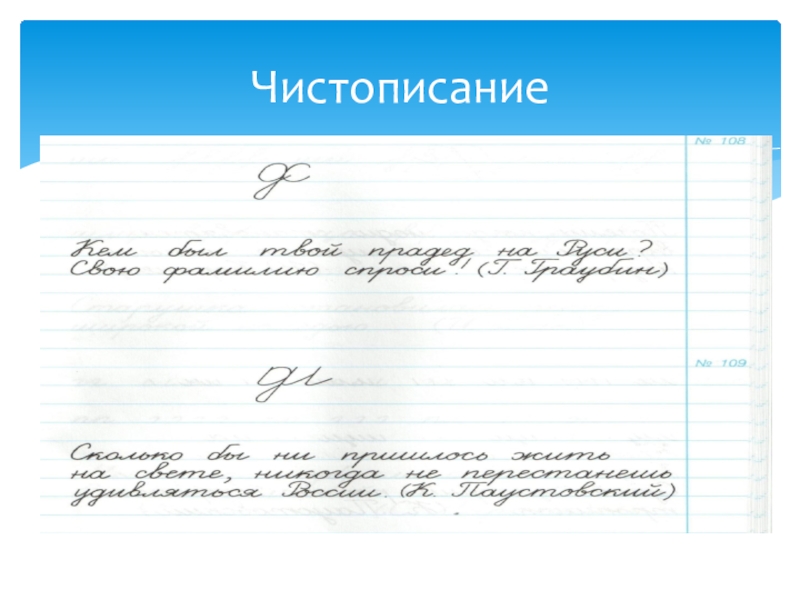 Чистописание
№ 108
Кем был твой прадед на Руси?
Свою фамилию спроси! (Г. Граубин)
№ 109
Сколько бы ни пришлось жить
на свете, никогда не перестанешь
удивляться России. (К. Паустовский)